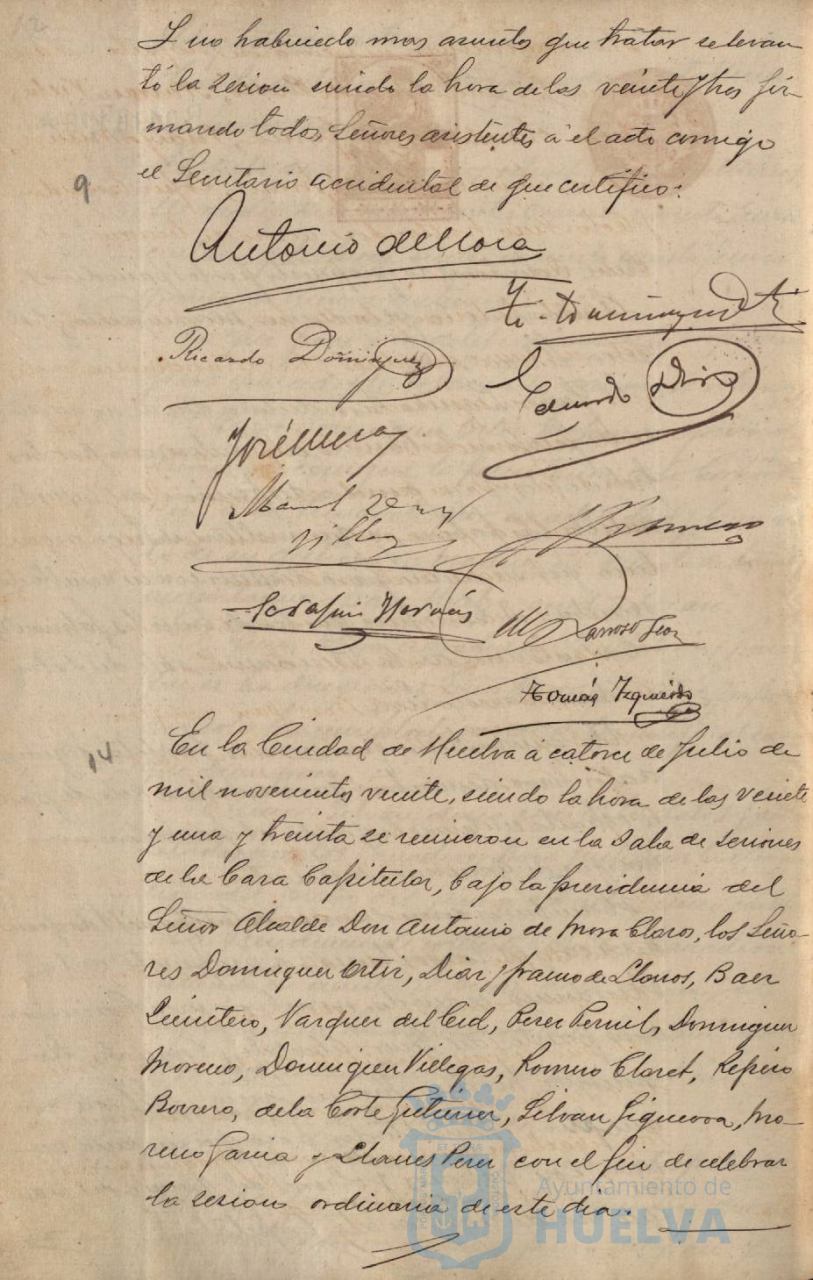 Y no habiendo mas asuntos que tratar se levan
tó la sesion siendo la hora de las veinte y tres fir-
mando todos Señores asistentes á el acto conmigo
9
el Secretario accidental de que certifico:
Antonio de Mora
Ricardo Dominguez
Eduardo Diaz
José Mesa
Manuel
Romero
Serafin
Tomás Izquierdo
14
En la Ciudad de Huelva á catorce de Julio de
mil novecientos veinte, siendo la hora de las veinte
y una y treinta se reunieron en la Sala de sesiones
de la Casa Capitular, bajo la presidencia del
Señor Alcalde Don Antonio de Mora Claros, los Seño-
res Dominguez Ortiz, Diaz y franco de Llanos, Baez
Quintero, Vazquez del Cid, Perez Pernil, Dominguez
Moreno, Dominguez Villegas, Romero Claret,
Borrero, de la Corte Gutierrez, Silvan Figueroa, Mo-
reno Garcia y Llanes Perez con el fin de celebrar
la sesion ordinaria de este dia.
Ayuntamiento de
HUELVA